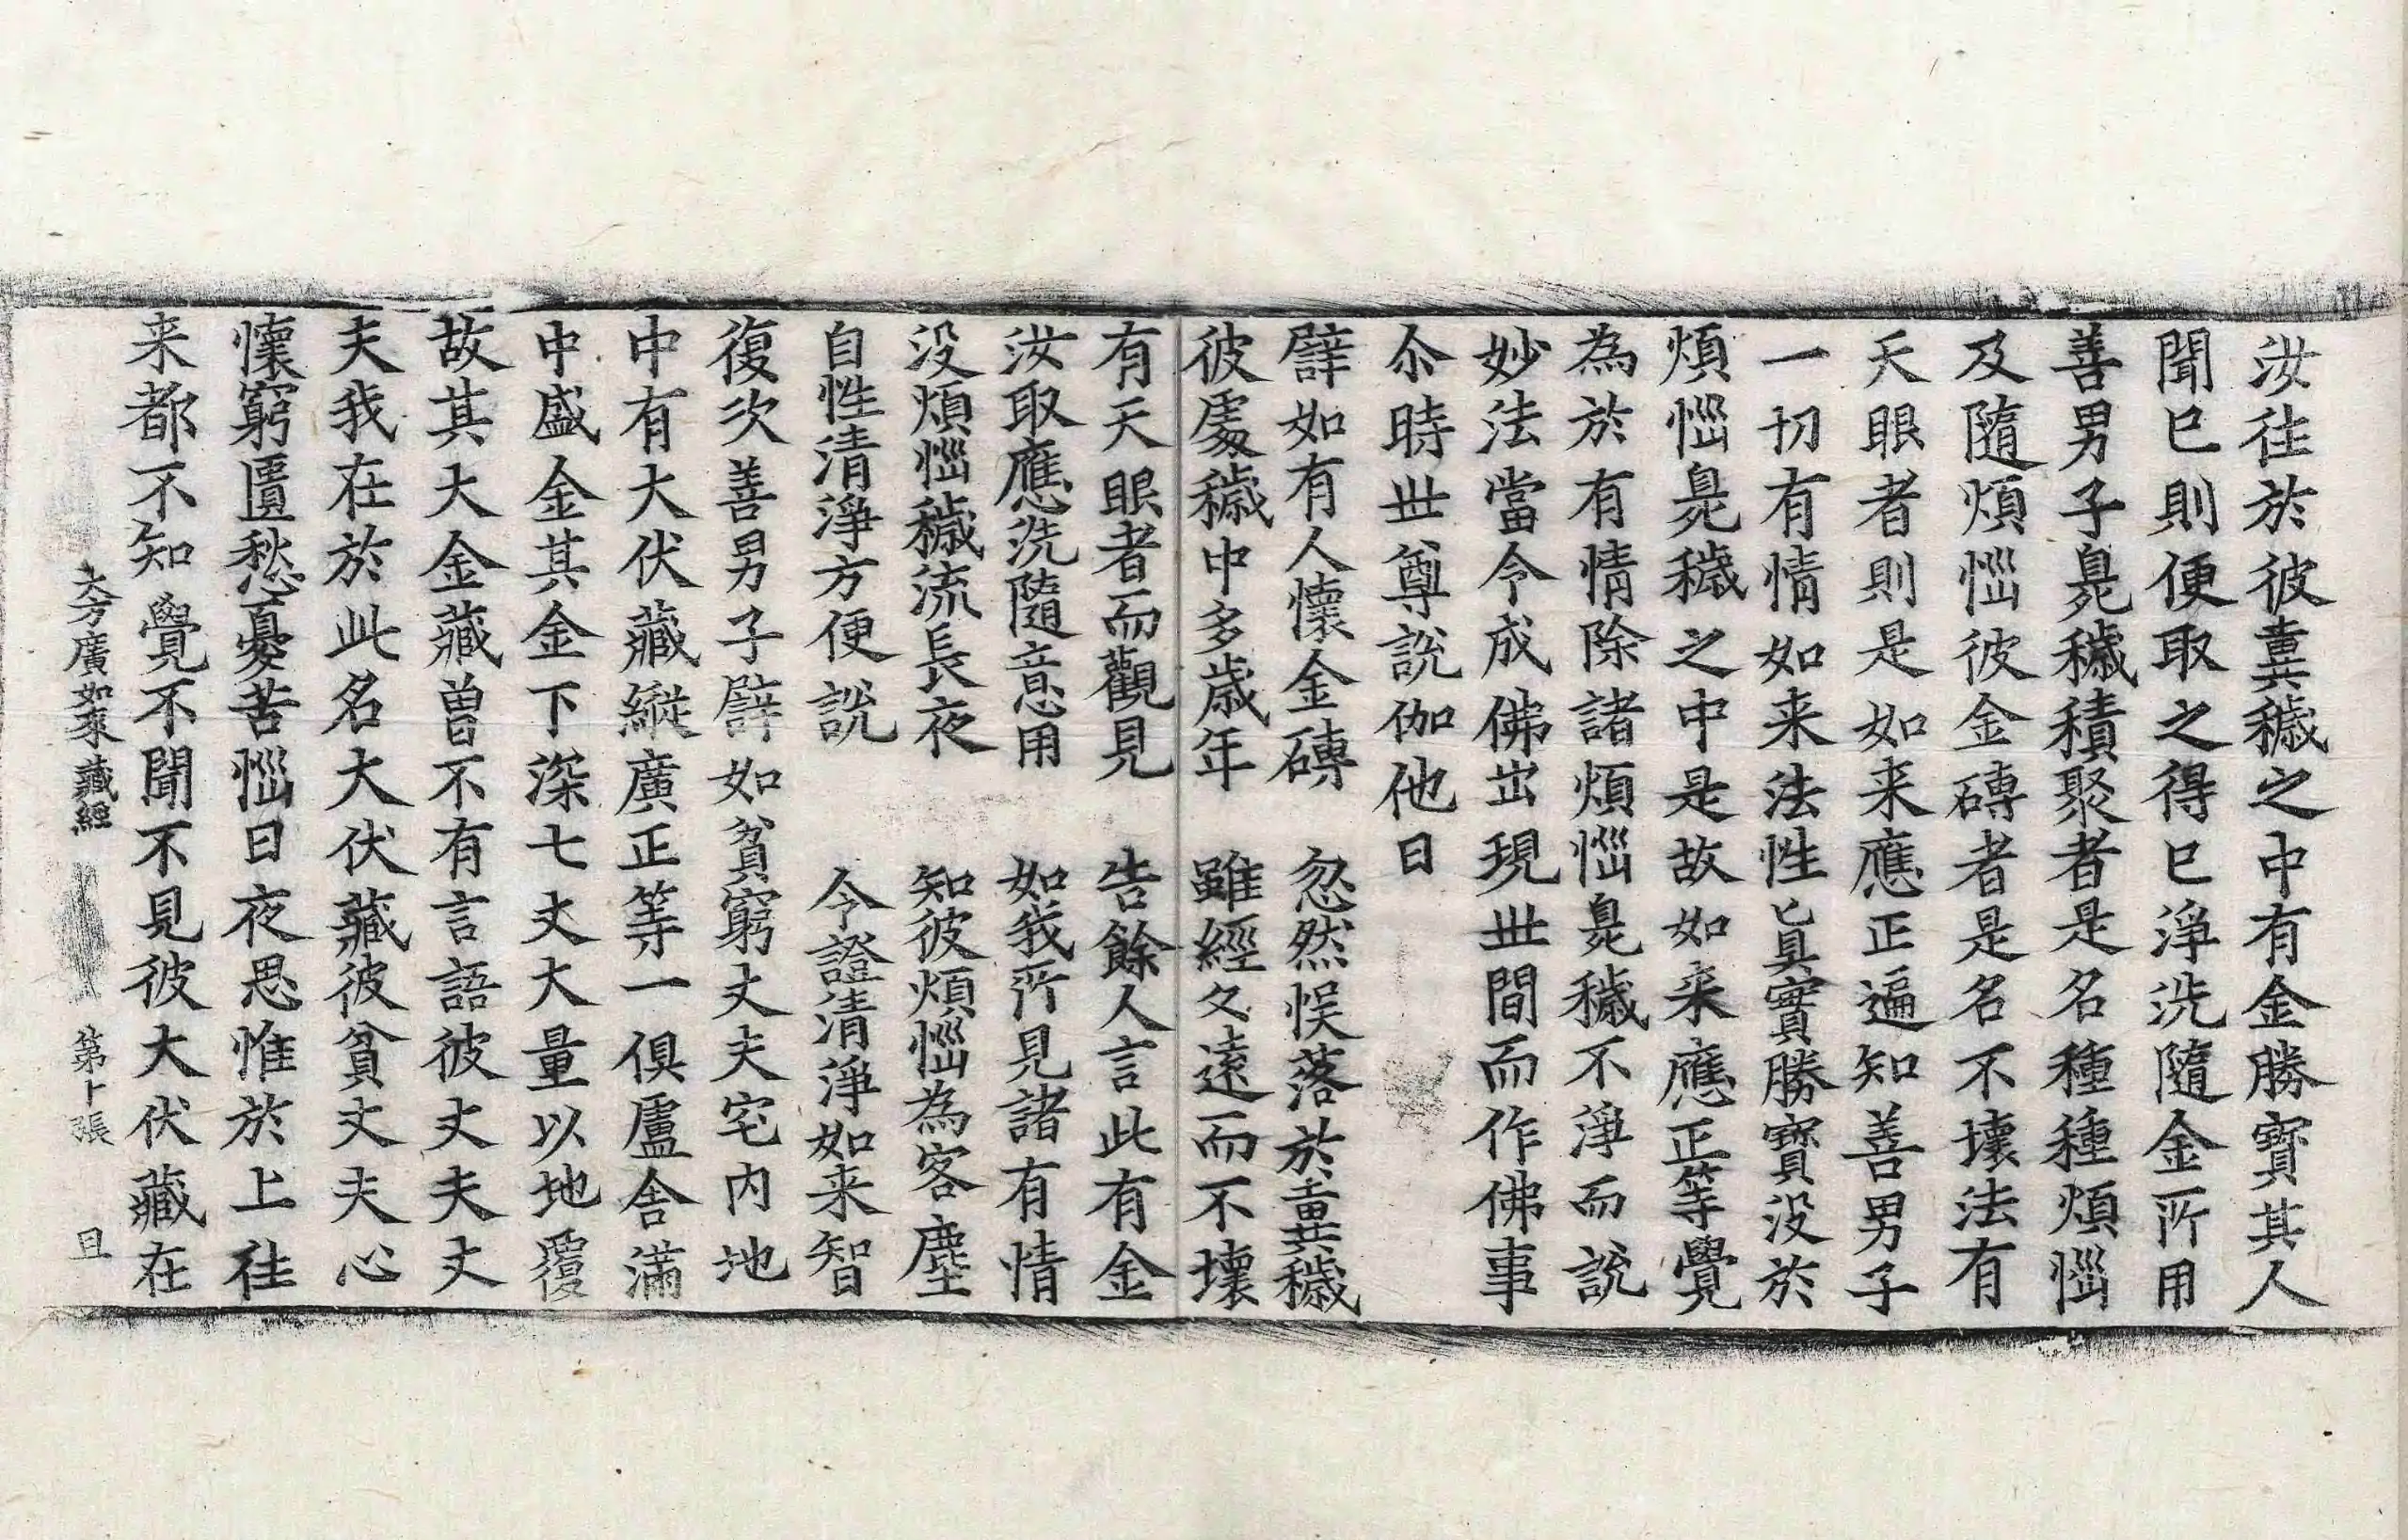 汝往於彼糞穢之中有金勝寶其人
聞已則便取之得已淨洗隨金所用
善男子臰穢積聚者是名種種煩惱
及隨煩惱彼金磚者是名不壞法有
天眼者則是如来應正遍知善男子
一切有情如来法性真實勝寶没於
煩惱臰穢之中是故如来應正等覺
為於有情除諸煩惱臰穢不淨而說
妙法當令成佛出現世間而作佛事
尒時世尊說伽他曰
譬如有人懷金磚　忽然悮落於糞穢
彼處穢中多歳年　雖經久遠而不壞
有天眼者而觀見　告餘人言此有金
汝取應洗隨意用　如我所見諸有情
没煩惱穢流長夜　知彼煩惱為客塵
自性清淨方便說　令證清淨如来智
復次善男子譬如貧窮丈夫宅内地
中有大伏藏縱廣正等一俱盧舍滿
中盛金其金下深七丈大量以地覆
故其大金藏曾不有言語彼丈夫丈
夫我在於此名大伏藏彼貧丈夫心
懷窮匱愁憂苦惱日夜思惟於上往
来都不知覺不聞不見彼大伏藏在
大方廣如来藏經　第十張　且